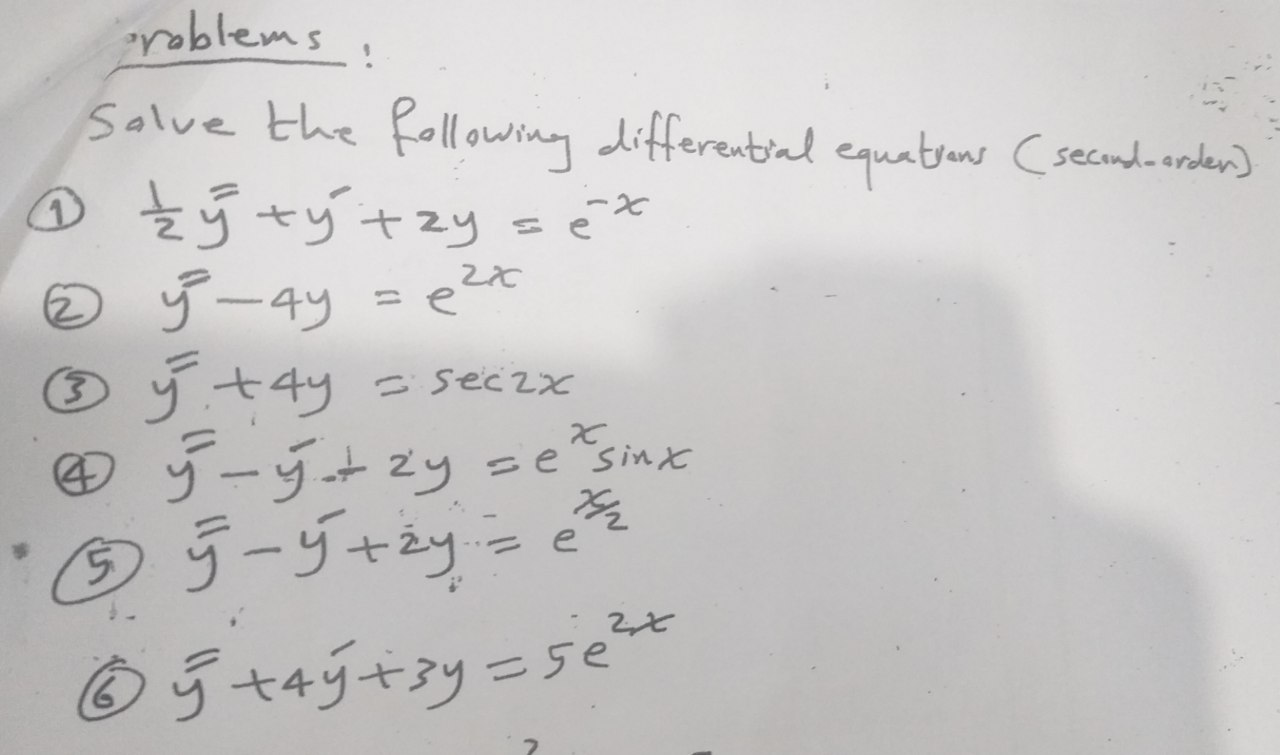 roblems :
Solve the following differential equations (second-order)
① ½ y̿ + y̅ + 2y = e^-x
② y̿ - 4y = e^2x
③ y̿ + 4y = sec2x
④ y̿ - y̅ + 2y = e^x sinx
⑤ y̿ - y̅ + 2y = e^x/2
⑥ y̿ + 4y̅ + 3y = 5e^2x